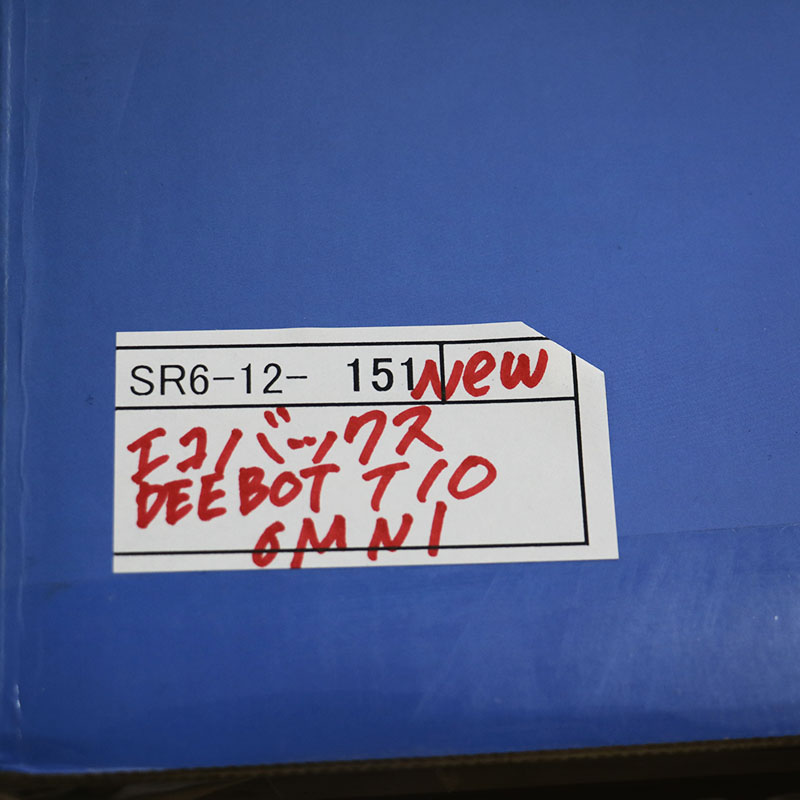 SR6-12- 151 New
エコバックス
DEEBOT T10
OMNI